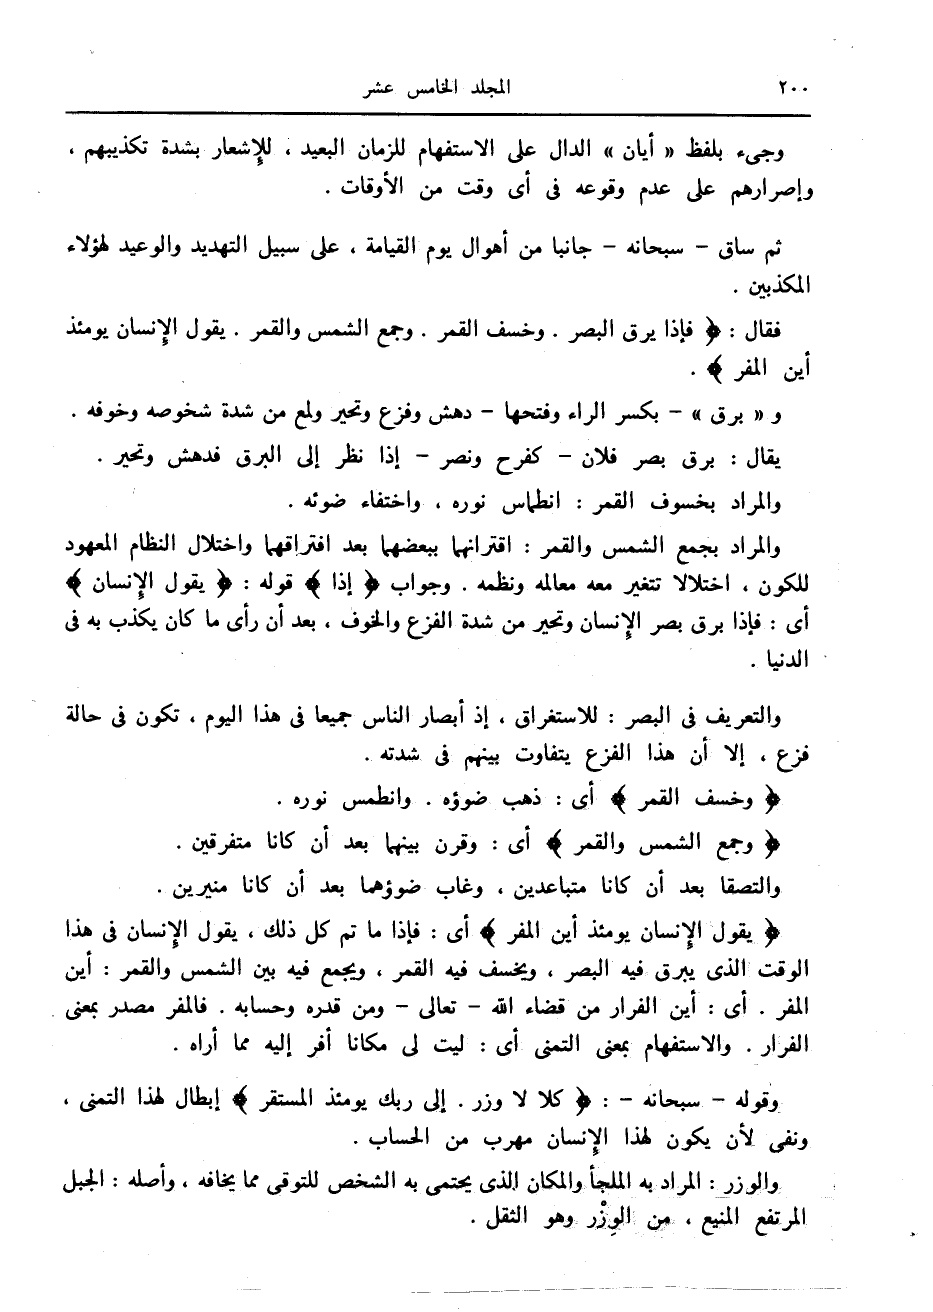 ٢٠٠ المجلد الخامس عشر
وجىء بلفظ « أيان » الدال على الاستفهام للزمان البعيد ، للإشعار بشدة تكذيبهم ،
وإصرارهم على عدم وقوعه فى أى وقت من الأوقات .
ثم ساق – سبحانه – جانبا من أهوال يوم القيامة ، على سبيل التهديد والوعيد لهؤلاء
المكذبين .
فقال : ﴿ فإذا برق البصر . وخسف القمر . وجمع الشمس والقمر . يقول الإنسان يومئذ
أين المفر ﴾ .
و « برق » – بكسر الراء وفتحها – دهش وفزع وتحير ولمع من شدة شخوصه وخوفه .
يقال : برق بصر فلان – كفرح ونصر – إذا نظر إلى البرق فدهش وتحير .
والمراد بخسوف القمر : انطماس نوره ، واختفاء ضوئه .
والمراد بجمع الشمس والقمر : اقترانهما ببعضهما بعد افتراقهما واختلال النظام المعهود
للكون ، اختلالا تتغير معه معالمه ونظمه . وجواب ﴿ إذا ﴾ قوله : ﴿ يقول الإنسان ﴾
أى : فإذا برق بصر الإنسان وتحير من شدة الفزع والخوف ، بعد أن رأى ما كان يكذب به فى
الدنيا .
والتعريف فى البصر : للاستغراق ، إذ أبصار الناس جميعا فى هذا اليوم ، تكون فى حالة
فزع ، إلا أن هذا الفزع يتفاوت بينهم فى شدته .
﴿ وخسف القمر ﴾ أى : ذهب ضوؤه . وانطمس نوره .
﴿ وجمع الشمس والقمر ﴾ أى : وقرن بينهما بعد أن كانا متفرقين .
والتصقا بعد أن كانا متباعدين ، وغاب ضوؤهما بعد أن كانا منيرين .
﴿ يقول الإنسان يومئذ أين المفر ﴾ أى : فإذا ما تم كل ذلك ، يقول الإنسان فى هذا
الوقت الذى يبرق فيه البصر ، ويخسف فيه القمر ، ويجمع فيه بين الشمس والقمر : أين
المفر . أى : أين الفرار من قضاء الله – تعالى – ومن قدره وحسابه . فالمفر مصدر بمعنى
الفرار . والاستفهام بمعنى التمنى أى : ليت لى مكانا أفر إليه مما أراه .
وقوله – سبحانه – : ﴿ كلا لا وزر . إلى ربك يومئذ المستقر ﴾ إبطال لهذا التمنى ،
ونفى لأن يكون لهذا الإنسان مهرب من الحساب .
والوزر : المراد به الملجأ والمكان الذى يحتمى به الشخص للتوقى مما يخافه ، وأصله : الجبل
المرتفع المنيع ، من الوِزْر وهو الثقل .